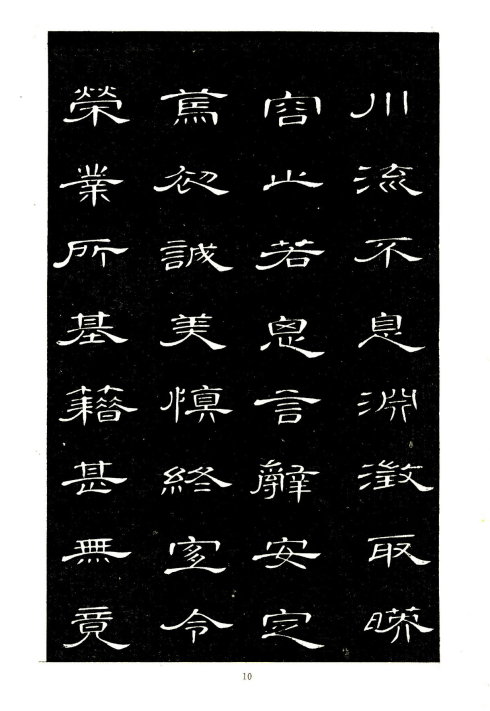 川流不息淵澂取暎
容止若思言辭安定
篤初誠美慎終宜令
榮業所基籍甚無竟
10